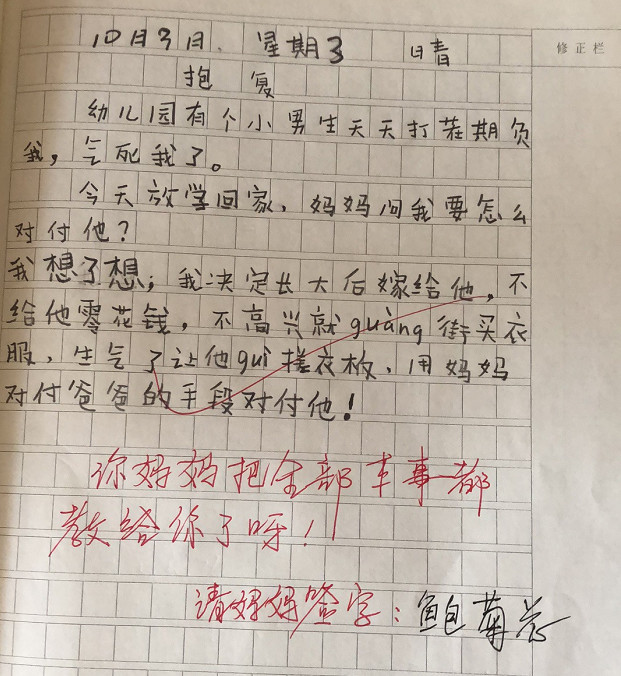 修正栏
10月3日、星期3 晴
抱复
幼儿园有个小男生天天打茬期负
我，气死我了。
今天放学回家、妈妈问我要怎么
对付他？
我想了想；我决定长大后嫁给他，不
给他零花钱，不高兴就guàng街买衣
服、生气了让他guì搓衣板、用妈妈
对付爸爸的手段对付他！
你妈妈把全部本事都
教给你了呀！
请妈妈签字：鲍菊芯